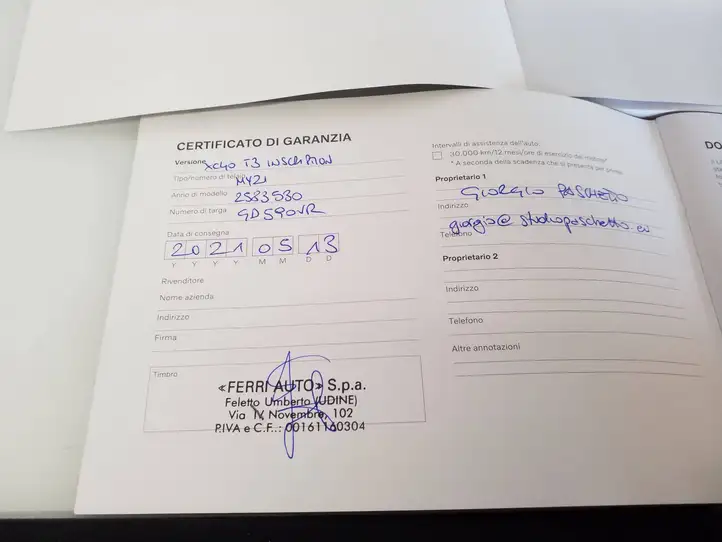 CERTIFICATO DI GARANZIA
Versione XC40 T3 INSCRIPTION
Tipo/numero di telaio MY21
Anno di modello 2533530
Numero di targa GD590VR
Data di consegna
2021 05 13
Y Y Y Y M M D D
Rivenditore
Nome azienda
Indirizzo
Firma
Timbro
«FERRI AUTO» S.p.a.
Feletto Umberto (UDINE)
Via IV Novembre, 102
P.IVA e C.F..: 00161160304
Intervalli di assistenza dell'auto:
30.000 km/12 mesi/ore di esercizio del motore*
* A seconda della scadenza che si presenta per prima
Proprietario 1
GIORGIO PASCHETTO
Indirizzo
giorgio@studiopaschetto.eu
Telefono
Proprietario 2
Indirizzo
Telefono
Altre annotazioni
DO